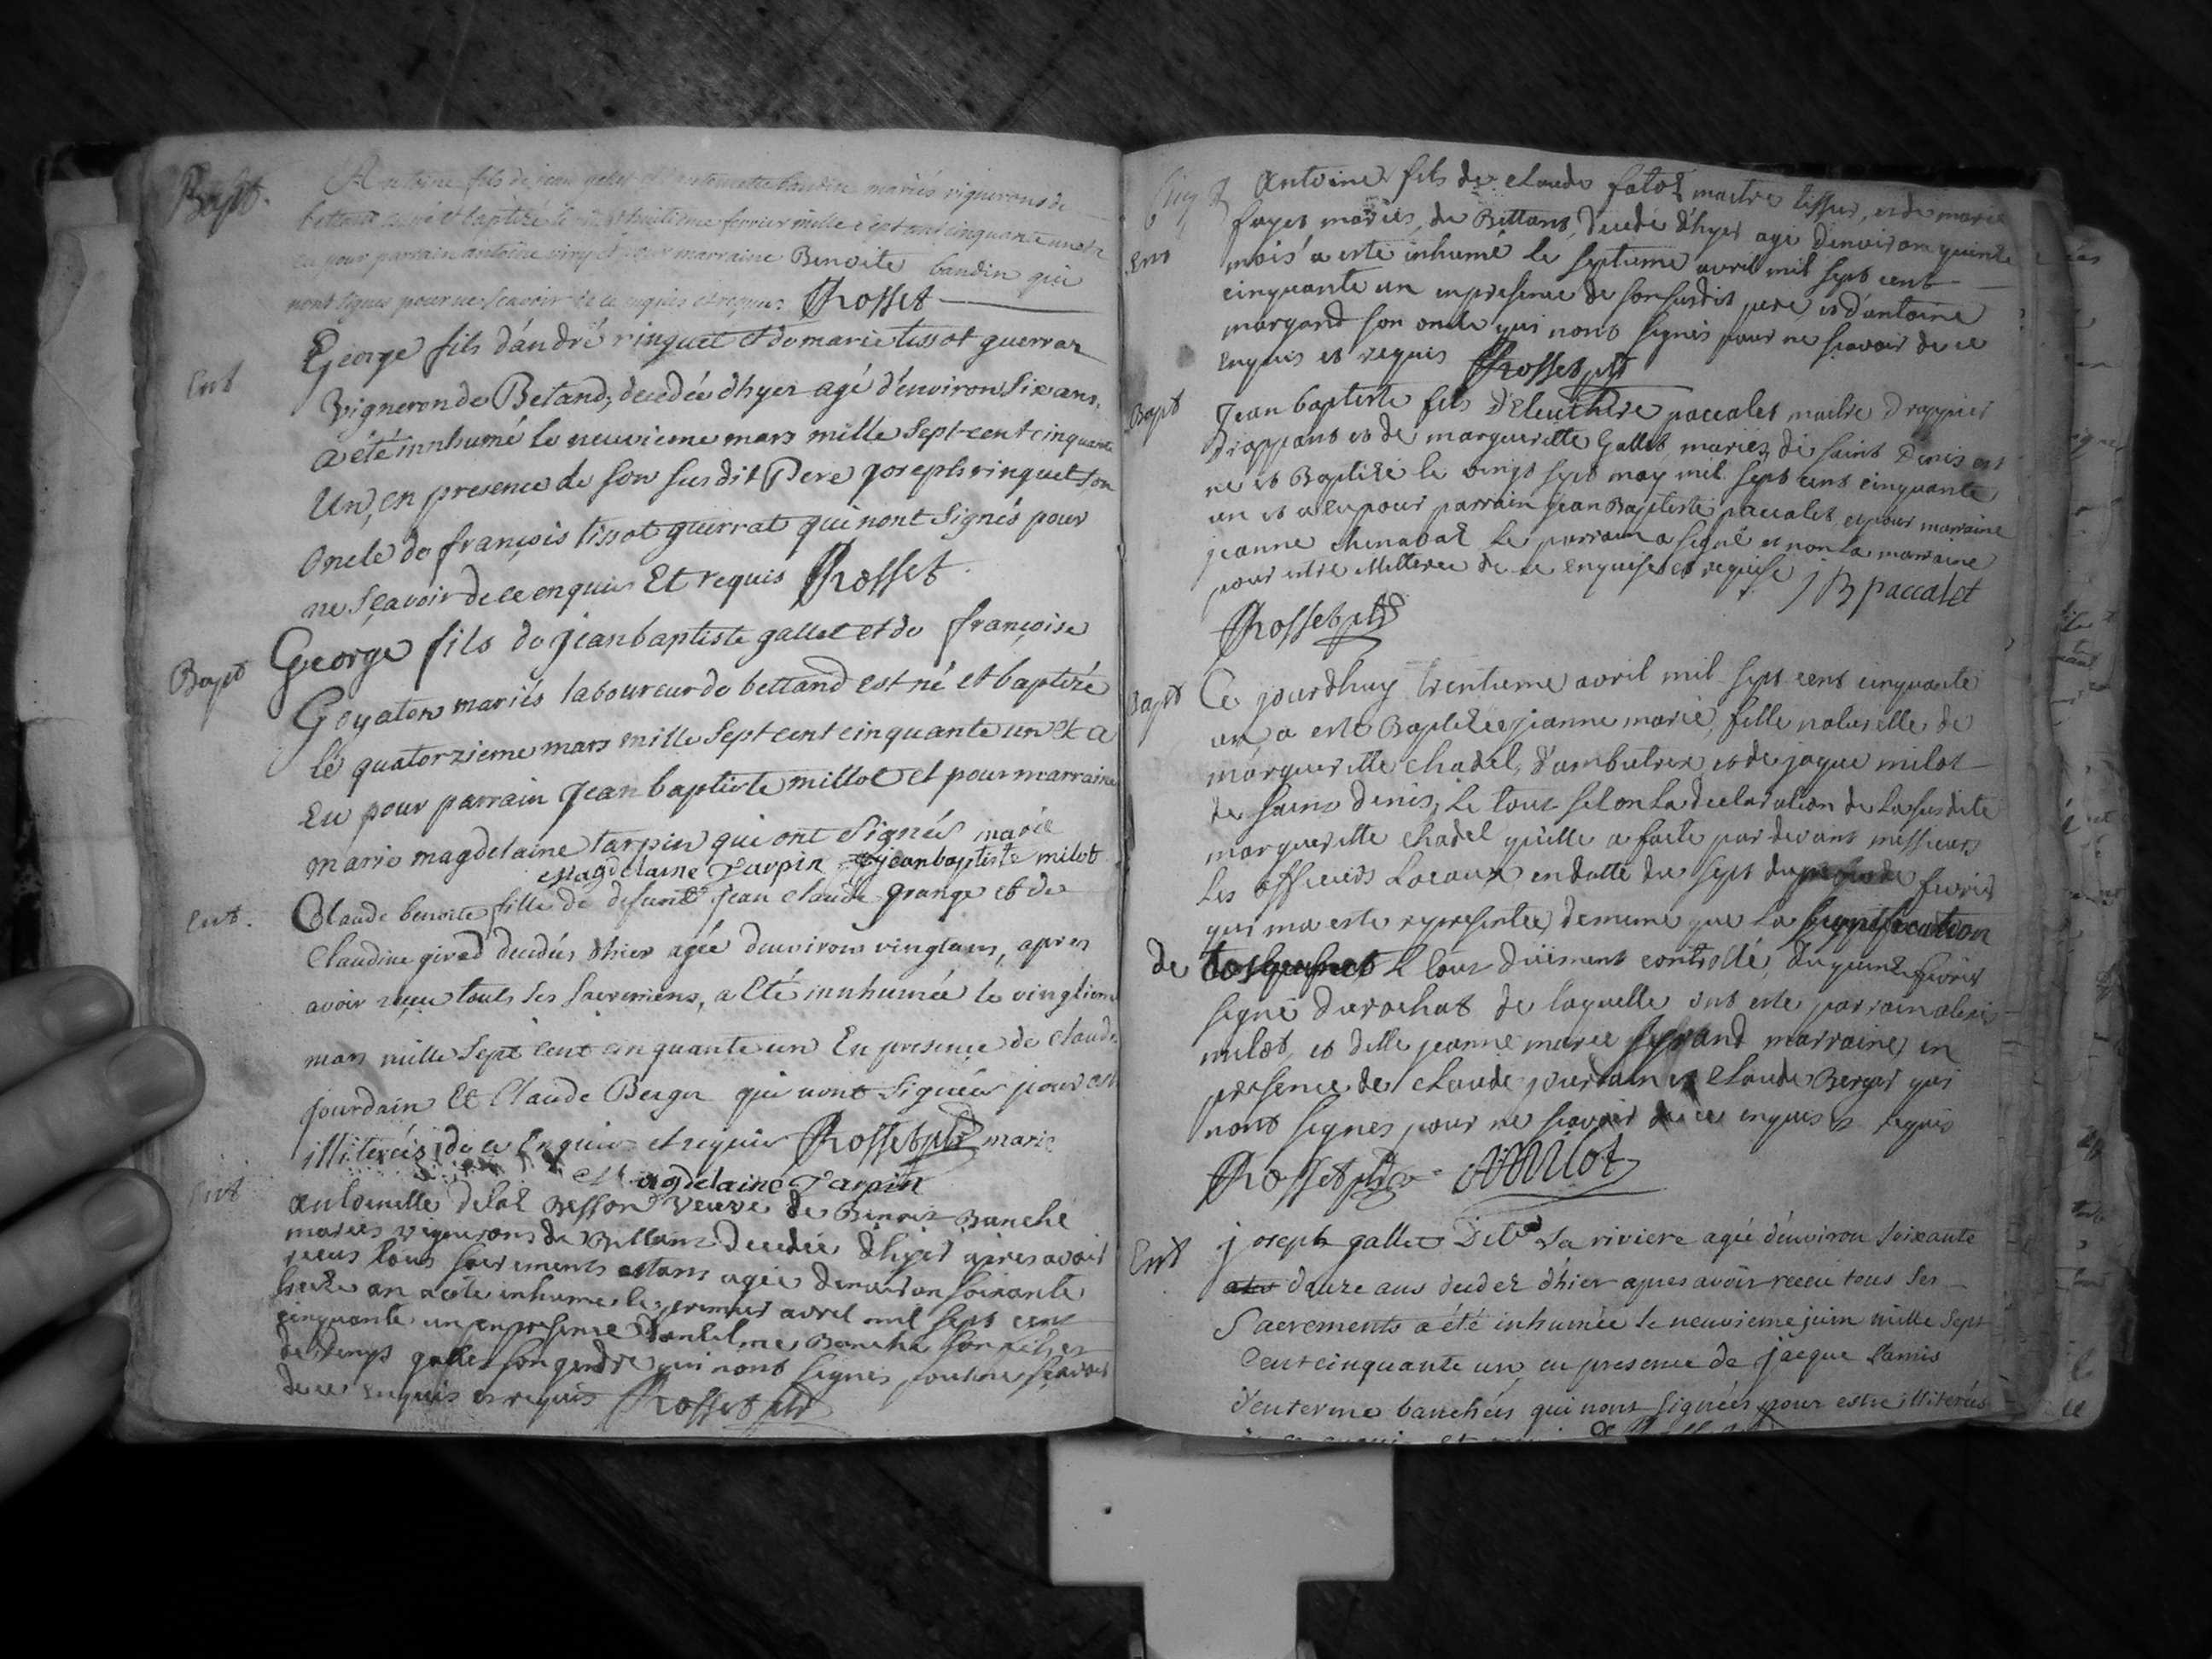 Bapt.
Antoine fils de jean gallet et d'antoinette baudin mariés vignerons de
bettand est né et baptizé le vingt huitieme fevrier mille sept cent cinquante un et a
eu pour parrain antoine vinçet pour marraine Benoite baudin qui
nont signés pour ne scavoir de ce enquis et requis. Rosset
Ent
George fils d'andré rinquet et de marie tissot guerraz
vigneron de Betand, decedée d'hyer agé d'environ six ans,
a été innhumé le neuvieme mars mille Sept-cent cinquante
un, en presence de son susdit Pere joseph rinquet son
oncle de françois tissot guerrat qui nont Signés pour
ne Sçavoir de ce enquis Et requis Rosset
Bapt
George fils de Jean baptiste gallet et de françoise
Goyaton mariés laboureur de bettand est né et baptizé
le quatorzieme mars mille Sept cent cinquante un et a
Eu pour parrain Jean baptiste millot et pour marraine
marie magdelaine tarpin qui ont Signés marie
Magdelaine Tarpin jean baptiste milot
Ent.
Claude benoite fille de defunt jean claude grange et de
Claudine girod decedés d'hier agée d'environ vingt ans, apres
avoir reçu touts ses sacremens, a Eté innhumée le vingtieme
mars mille Sept Cent cinquante un En presence de claude
jourdain Et Claude Berger qui nont Signées pour est
illiterés de ce Enquis et requis Rosset ptr marie
Magdelaine Tarpin
Ent
antoinette Besson veuve de Benoit Banche
mariés vignerons de Bettans decedée d'hyer apres avoir
receus tous sacrements estant agée d'environ soixante
treize an a été inhumé le premier avril mil sept cent
cinquante un en presence d'antelme Banche son fils et
de Denys gallet son gendre qui nont signés pour ne scavoir
de ce enquis et requis Rosset ptr
Ent
Antoine fils de claude maitre tissur, et de marie
fayet mariés, de Bettans, decedé d'hyer agé d'environ quinze
mois a esté inhumé le septieme avril mil sept cent
cinquante un en presence de son susdit pere et d'antoine
morgand son oncle qui nont signés pour ne scavoir de ce
enquis et requis Rosset ptr
Bapt
Jean baptiste fils d'Eleuthere paccalet maitre drappier
drappant et de margueritte Gallet mariez de saint Denis est
né et Baptizé le vingt sept may mil sept cent cinquante
un et a eu pour parrain Jean Baptiste paccalet et pour marraine
jeanne chenavaz le parrain a signé et non la marraine
pour estre illitterée de ce enquise et requise J B paccalet
Rosset ptr
Bapt
Ce jourdhuy trentieme avril mil sept cent cinquante
un, a esté Baptizée jeanne marie, fille naturelle de
marguerite chadel, d'ambutrix et de jaque milot
de saint denis, le tout selon la declaration de la susdite
marguerite chadel qu'elle a faite par devant messieurs
les officiers Locaux en datte du sept fevrier
qui ma esté representée, de meme que la signification
de le tout düement controllé du quinze fevrier
signé durochat de laquelle ont esté parrain alexis
milot, et delle jeanne marie marraine, en
presence de claude jourdain et claude Berger qui
nont signes pour ne scavoir de ce enquis et requis
Rosset ptr Milot
Ent
joseph gallet Dit La riviere agé d'environ soixante
douze ans decedez d'hier apres avoir receu tous ses
Sacrements a été inhumée le neuvieme juin mille sept
Cent cinquante un, en presence de jacque Lamis
D'enterme banchés qui nont signées pour estre illiterés